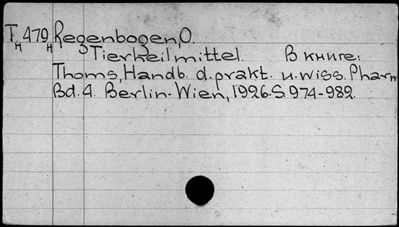 T 479 Regenbogen, O.
H H
Tierheilmittel. В книге:
Thoms, Handb. d. prakt. u. wiss. Pharm
Bd. 4. Berlin-Wien, 1926. S. 974-982.